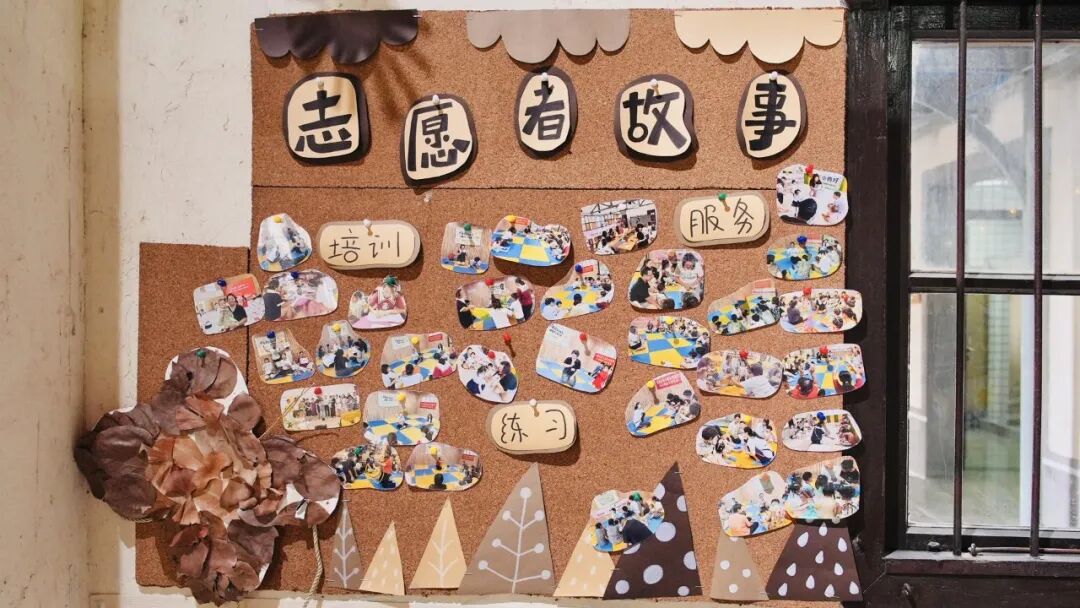 志愿者故事
服务
培训
练习